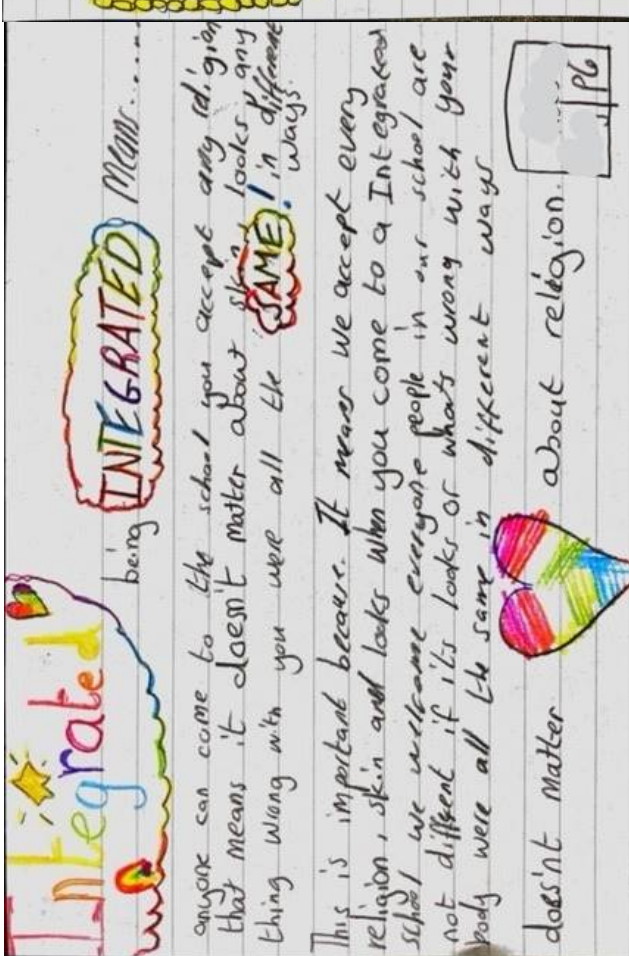 Integrated
being INTEGRATED Means.....
anyone can come to the school you accept any religion
that means it doesn't matter about skin, looks, any
thing wrong with you were all the SAME! in different
ways.
This is important because. It means we accept every
religion, skin and looks when you come to a Integrated
school we welcome everyone people in our school are
not diffent if it's looks or whats wrong with your
body were all the same in different ways
doesn't matter about religion.
P6